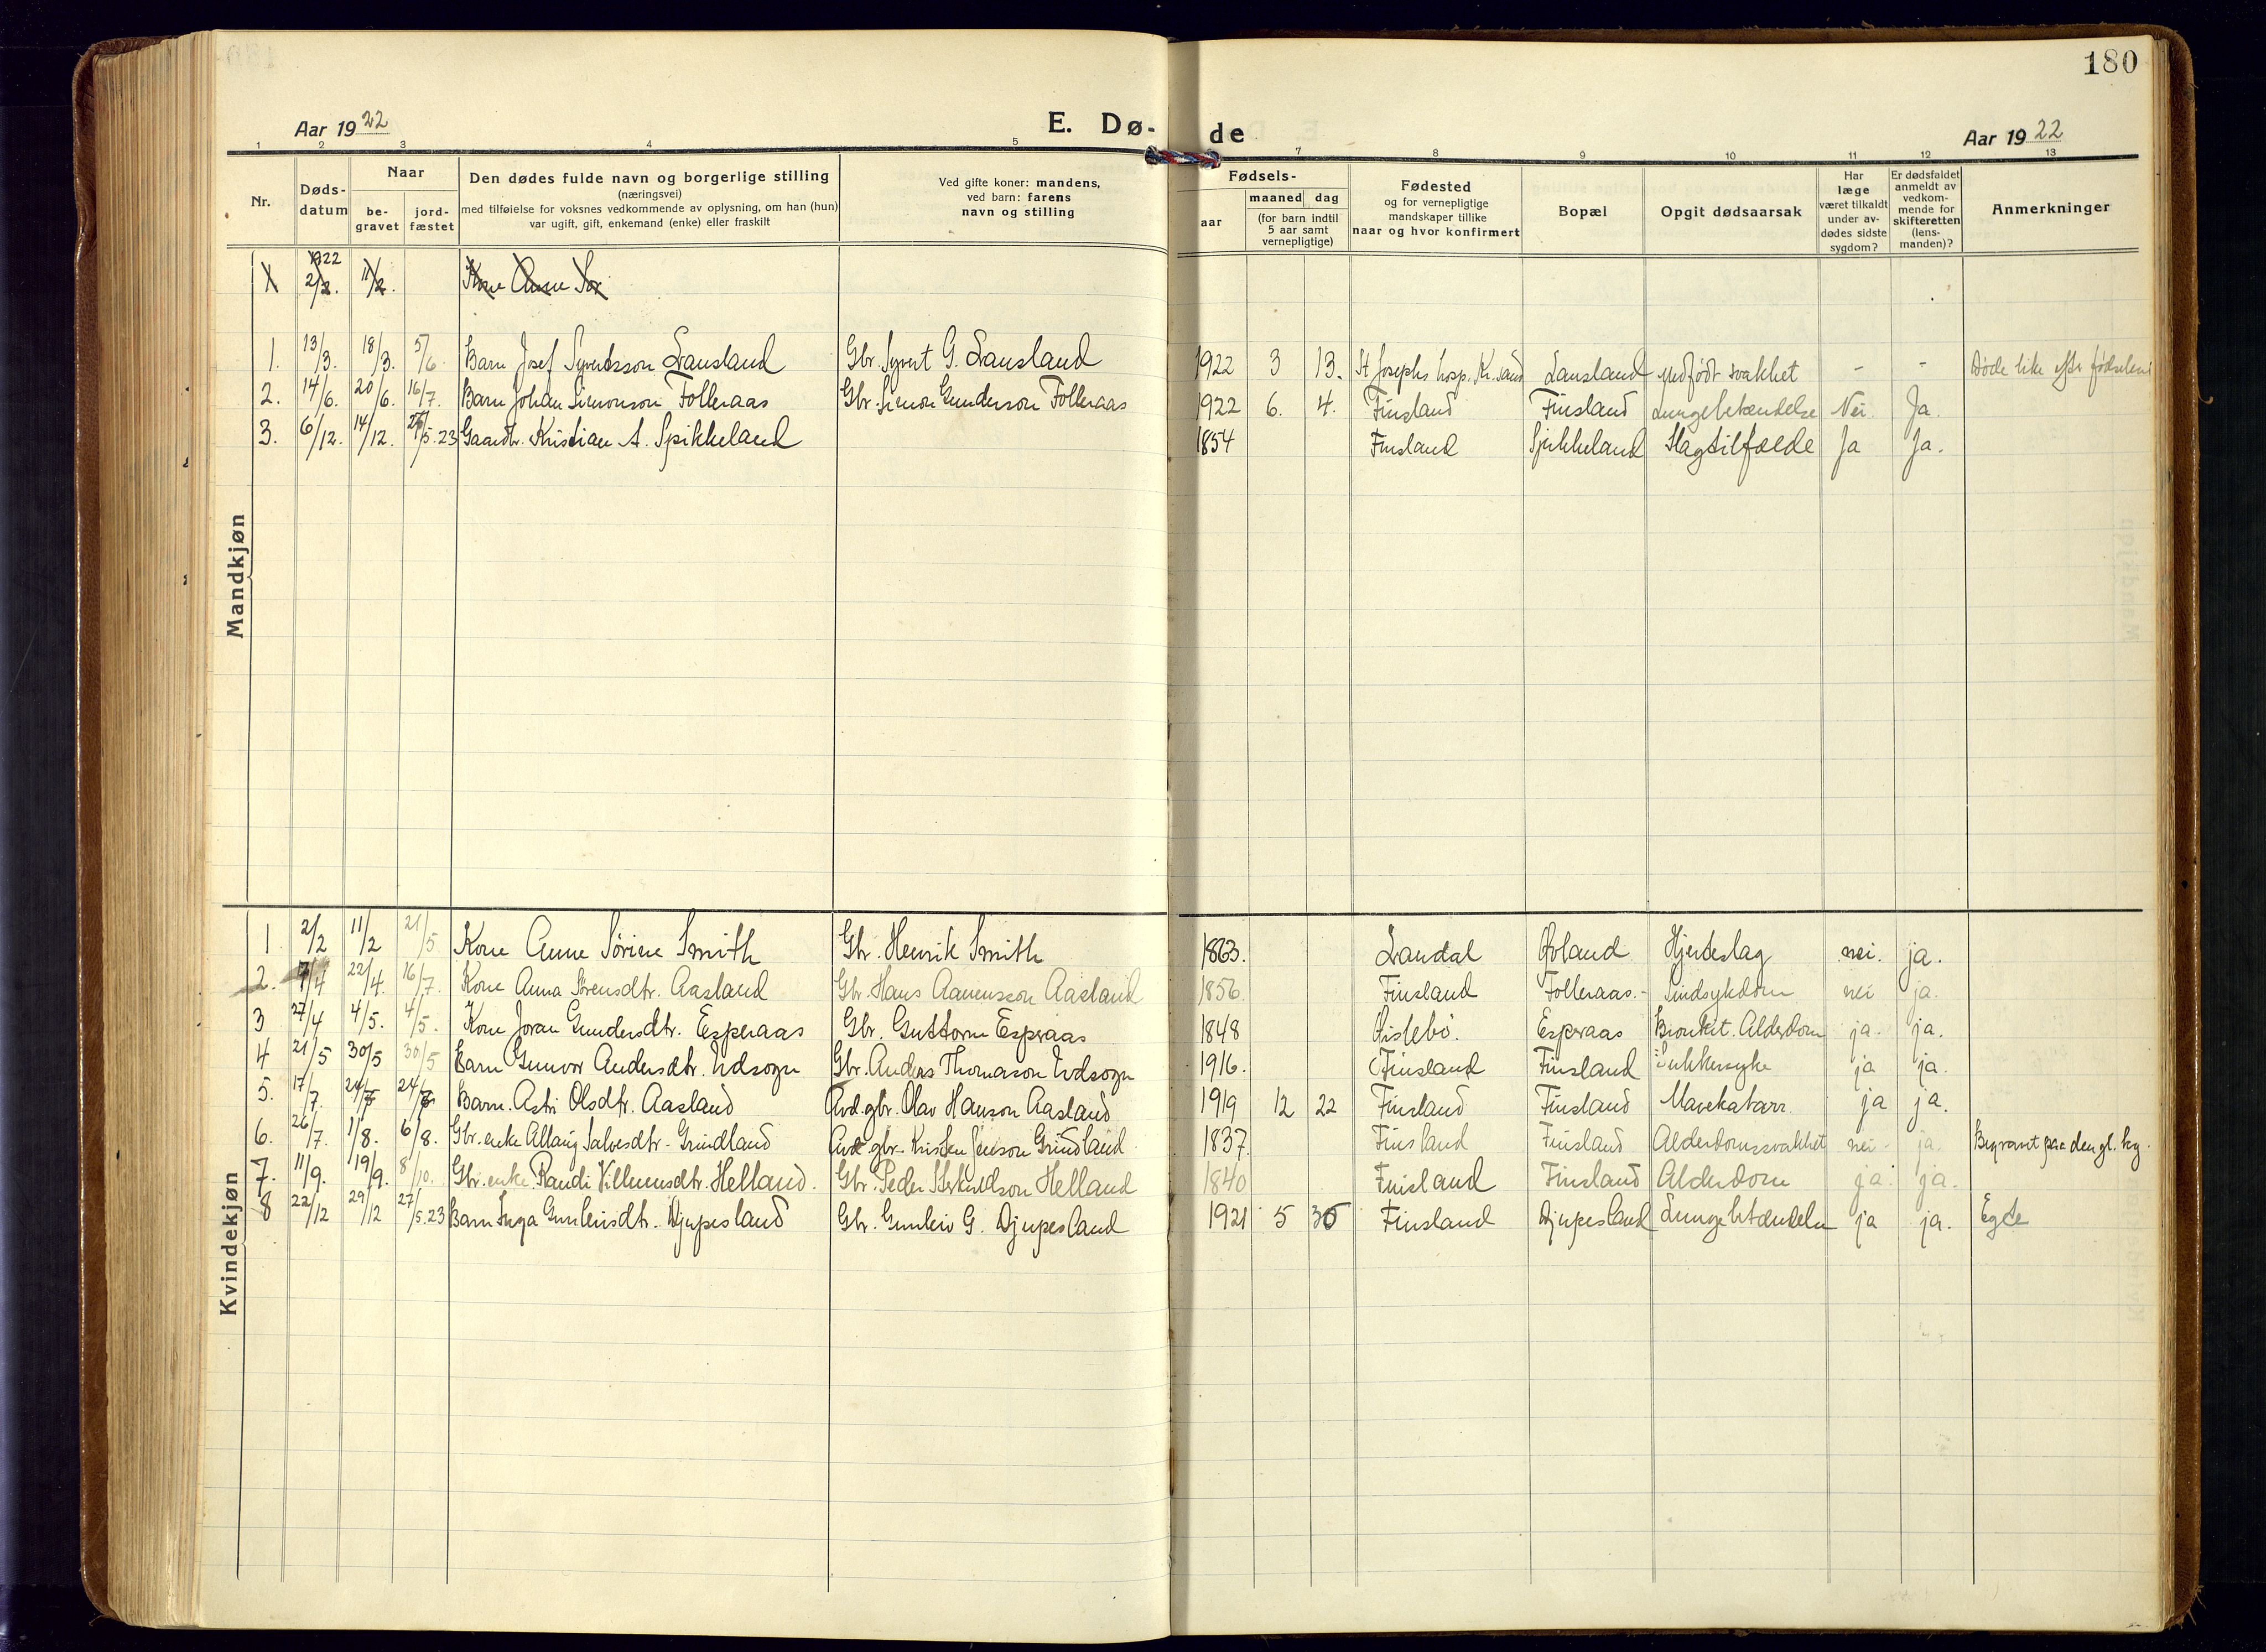 180
Aar 1922 E. Dø- de Aar 1922
1 2 3 4 5 7 8 9 10 11 12 13
Nr.
Døds-
datum
Naar
be-
gravet
jord-
fæstet
Den dødes fulde navn og borgerlige stilling
(næringsvei)
med tilføielse for voksnes vedkommende av oplysning, om han (hun)
var ugift, gift, enkemand (enke) eller fraskilt
Ved gifte koner: mandens,
ved barn: farens
navn og stilling
Fødsels-
aar
maaned dag
(for barn indtil
5 aar samt
vernepligtige)
Fødested
og for vernepligtige
mandskaper tillike
naar og hvor konfirmert
Bopæl
Opgit dødsaarsak
Har
læge
været tilkaldt
under av-
dødes sidste
sygdom?
Er dødsfaldet
anmeldt av
vedkom-
mende for
skifteretten
(lens-
manden)?
Anmerkninger
Mandkjøn
1922
1 2/2. 11/2. Kone Anne Sør
1. 13/3. 18/3. 5/6. Barn Josef Syvertsson Lausland Gbr. Syvert G. Lausland 1922 3 13. St Josephs hosp. Kr.sand Lausland Medfødt svakhet - - Døde like efter fødselen
2. 14/6. 20/6. 16/7. Barn Johan Simonson Folleraas Gbr. Simon Gunderson Folleraas 1922 6. 4. Finsland Finsland Lungebetændelse Nei. Ja.
3. 6/12. 14/12. 27/5.23 Gaardbr. Kristian A. Spikkeland 1854 Finsland Spikkeland Slagtilfælde Ja Ja.
Kvindekjøn
1. 2/2 11/2 21/5 Kone Anne Sørine Smith Gbr. Henrik Smith 1863. Laudal Øvland Hjerteslag nei. ja.
2. 17/4 22/4. 16/7. Kone Anna Sørensdtr. Aasland Gbr. Hans Aanensson Aasland 1856. Finsland Folleraas.- Sindsykdom nei ja.
3 27/4 4/5. 4/5. Kone Joran Gundersdtr. Esperaas Gbr. Guttorm Esperaas 1848 Øislebö. Esperaas Bronkit. Alderdom ja. ja.
4 21/5 30/5 30/5 Barn Gunvor Andersdtr. Udsogn Gbr. Anders Thomason Udsogn 1916. Finsland Finsland Sukkersyke ja ja.
5. 17/7. 24/7 24/7 Barn. Astri Olsdtr. Aasland Avd. gbr. Olav Hanson Aasland 1919 12 22 Finsland Finsland Mavekatarr. ja ja.
6. 26/7. 1/8. 6/8. Gbr. enke Allaug Salvesdtr. Grindland Avd gbr. Kristen Jenson Grindland 1837. Finsland Finsland Alderdomssvakhet nei ja. Begravet paa den gl. kg.
7. 11/9. 19/9. 8/10. Gbr. enke. Randi Villumsdtr. Helland. Gbr. Peder Helland 1840 Finsland Finsland Alderdom ja. ja.
8 22/12 29/12 27/5.23 Barn Inga Gunleivsdtr. Djupesland Gbr. Gunleiv G. Djupesland 1921 5 30 Finsland Djupesland Lungebetændelse ja ja. Egde